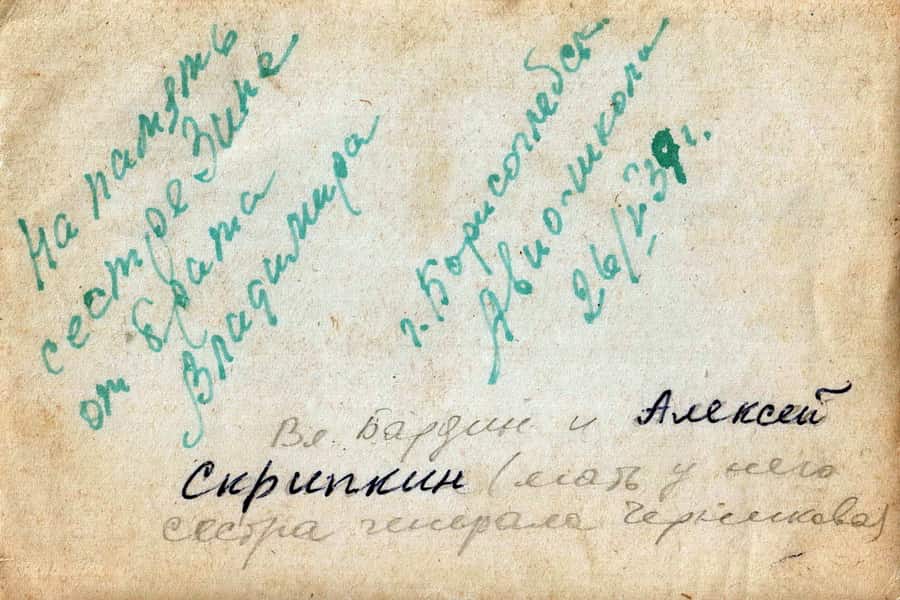 На память
сестре Зине
от брата
Владимира
г. Борисоглебск.
Авио-школа
26/V-39г.
Вл. Бардин и Алексей
Скрипкин (мать у него
сестра генерала Черникова)